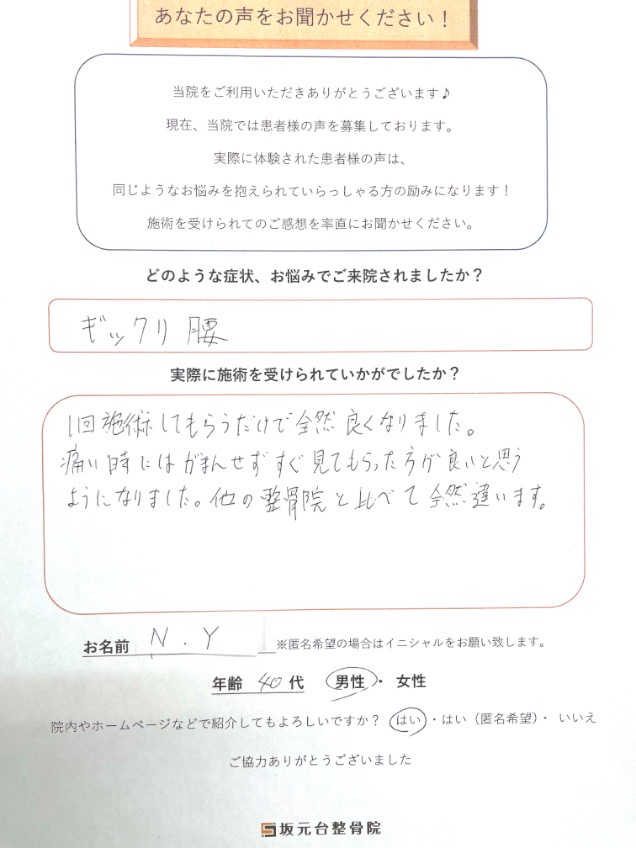 あなたの声をお聞かせください！
当院をご利用いただきありがとうございます♪
現在、当院では患者様の声を募集しております。
実際に体験された患者様の声は、
同じようなお悩みを抱えられていらっしゃる方の励みになります！
施術を受けられてのご感想を率直にお聞かせください。
どのような症状、お悩みでご来院されましたか？
ギックリ腰
実際に施術を受けられていかがでしたか？
1回施術してもらうだけで全然良くなりました。
痛い時にはがまんせずすぐ見てもらった方が良いと思う
ようになりました。他の整骨院と比べて全然違います。
お名前 N.Y ※匿名希望の場合はイニシャルをお願い致します。
年齢 40代 男性・女性
院内やホームページなどで紹介してもよろしいですか？ はい・はい（匿名希望）・いいえ
ご協力ありがとうございました
坂元台整骨院